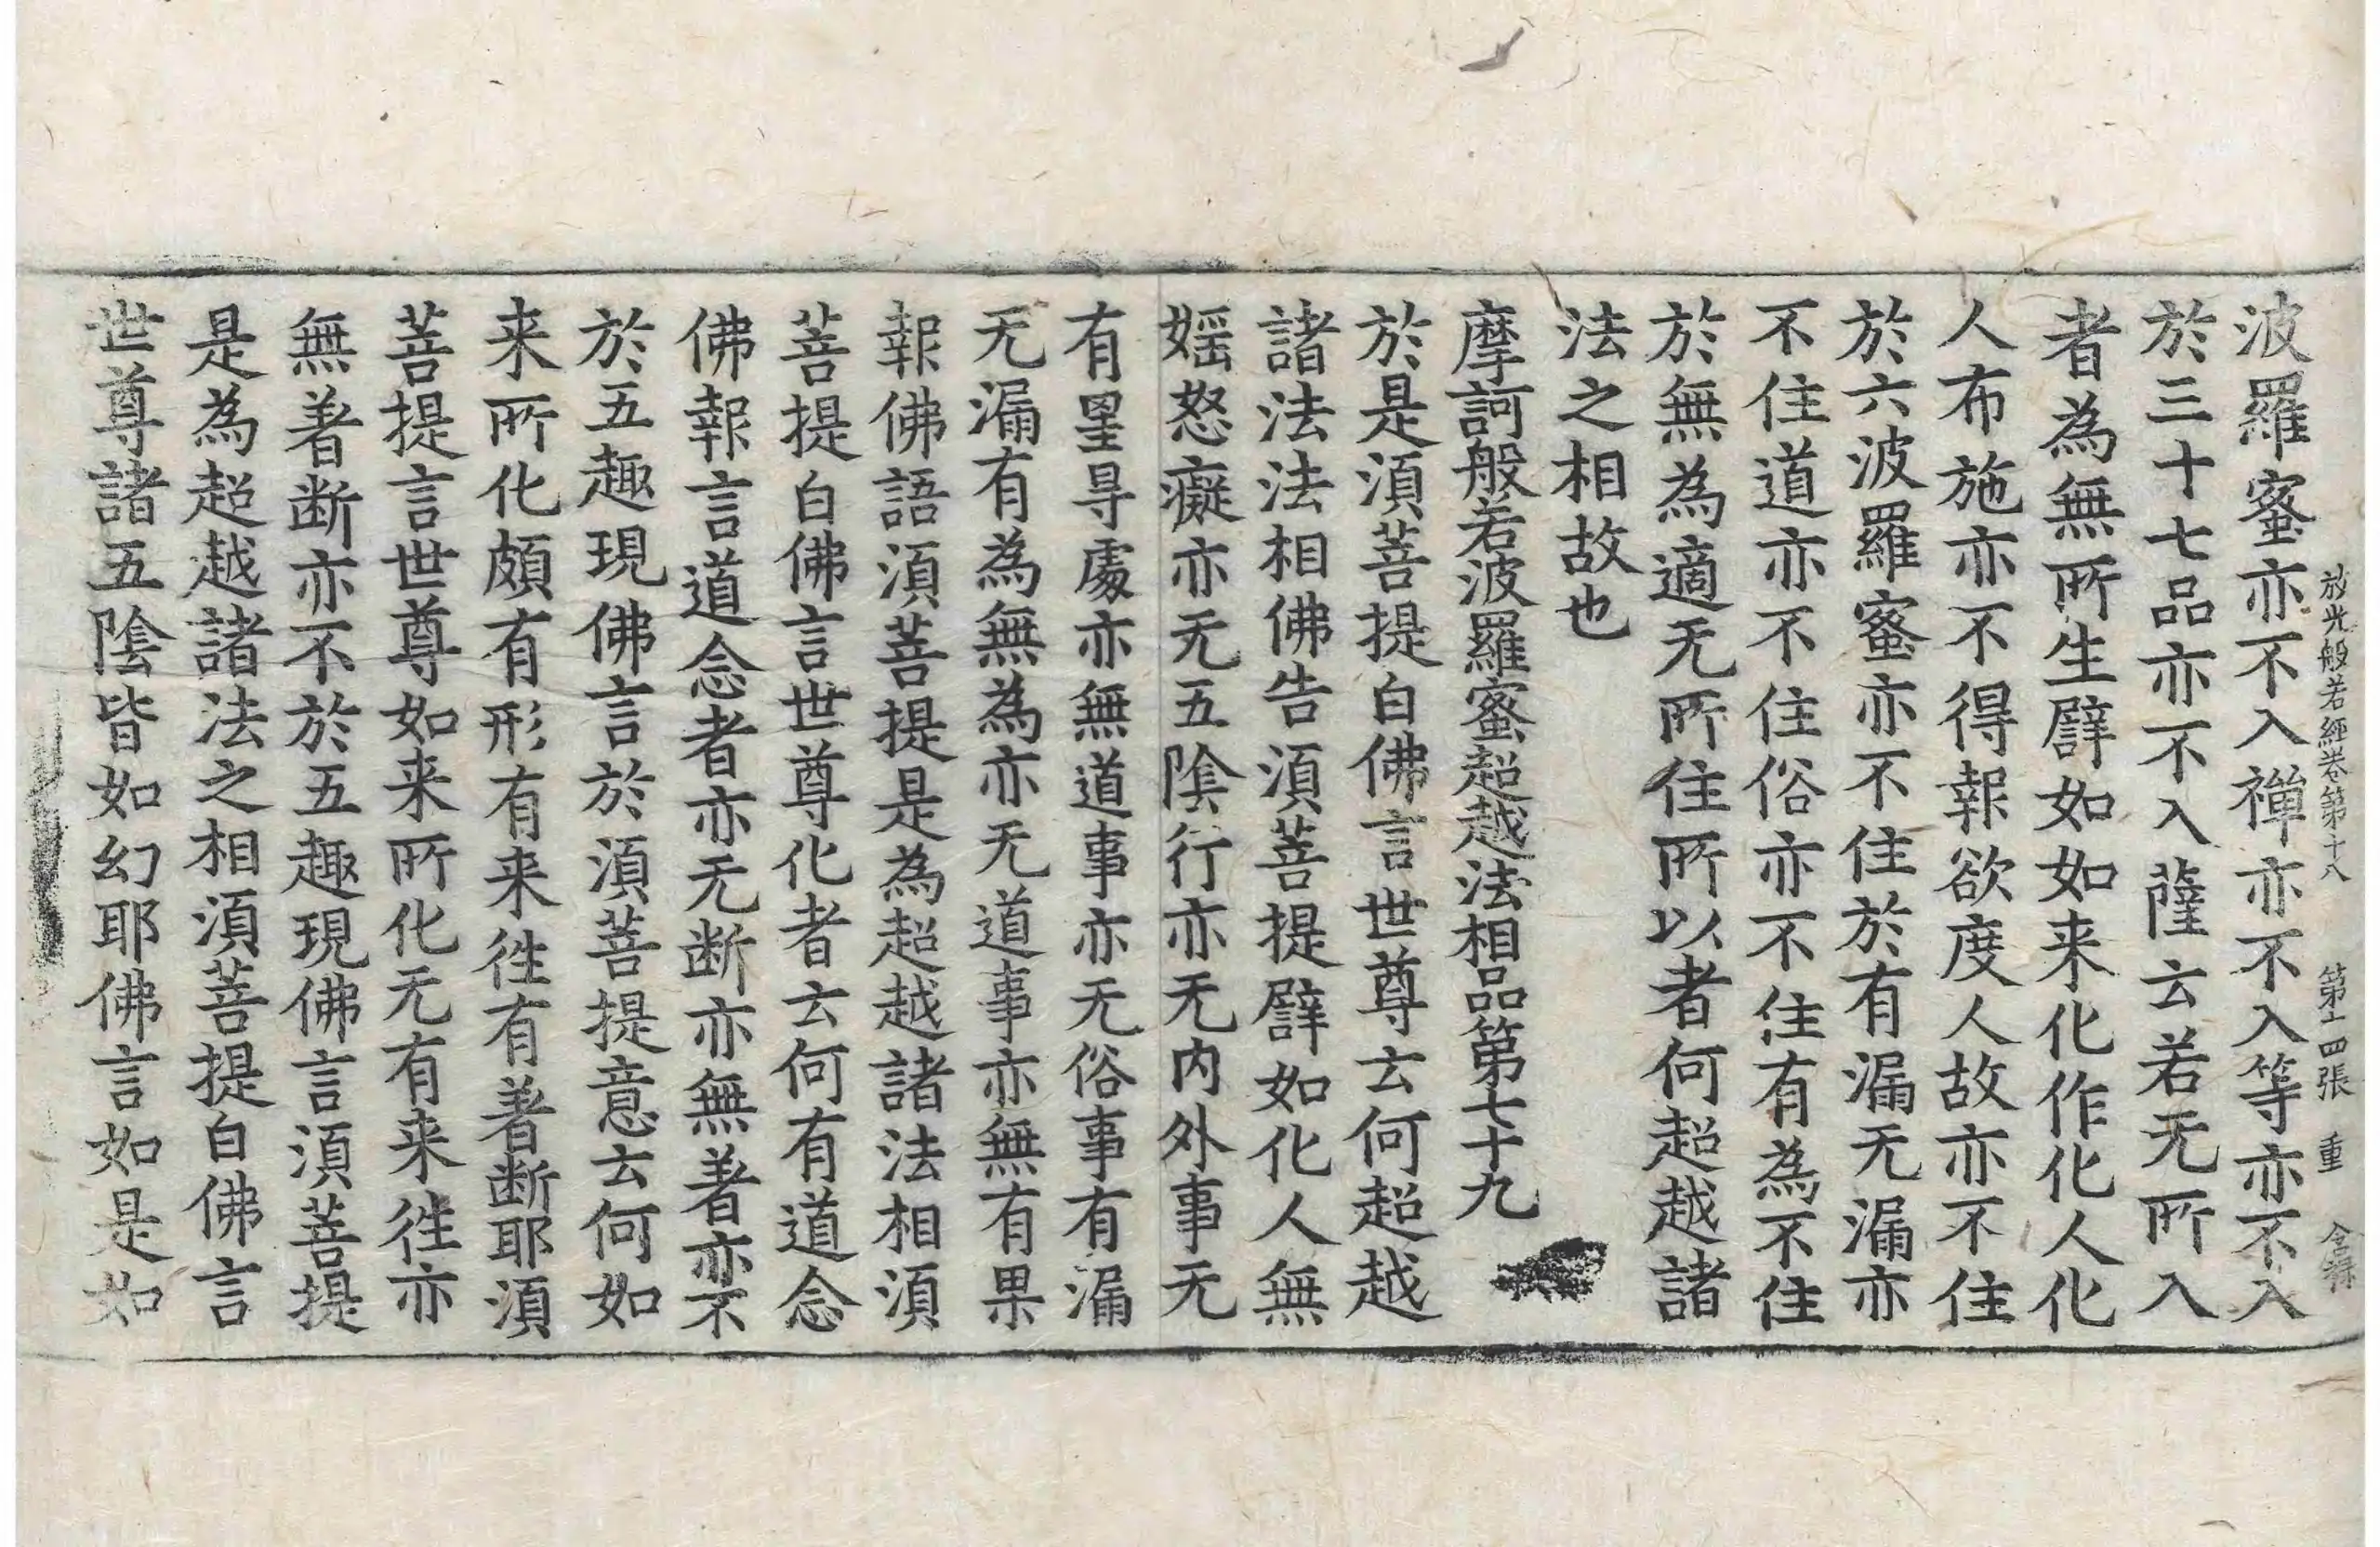 放光般若經卷第十八 第十四張 重
波羅蜜亦不入禅亦不入等亦不入
於三十七品亦不入薩云若无所入
者為無所生譬如如来化作化人化
人布施亦不得報欲度人故亦不住
於六波羅蜜亦不住於有漏无漏亦
不住道亦不住俗亦不住有為不住
於無為適无所住所以者何超越諸
法之相故也
摩訶般若波羅蜜超越法相品第七十九
於是湏菩提白佛言世尊云何超越
諸法法相佛告湏菩提譬如化人無
婬怒癡亦无五陰行亦无内外事无
有罣㝵處亦無道事亦无俗事有漏
无漏有為無為亦无道事亦無有果
報佛語湏菩提是為超越諸法相湏
菩提白佛言世尊化者云何有道念
佛報言道念者亦无断亦無著亦不
於五趣現佛言於湏菩提意云何如
来所化頗有形有来徃有著断耶湏
菩提言世尊如来所化无有来徃亦
無著断亦不於五趣現佛言湏菩提
是為超越諸法之相湏菩提白佛言
世尊諸五陰皆如幻耶佛言如是如